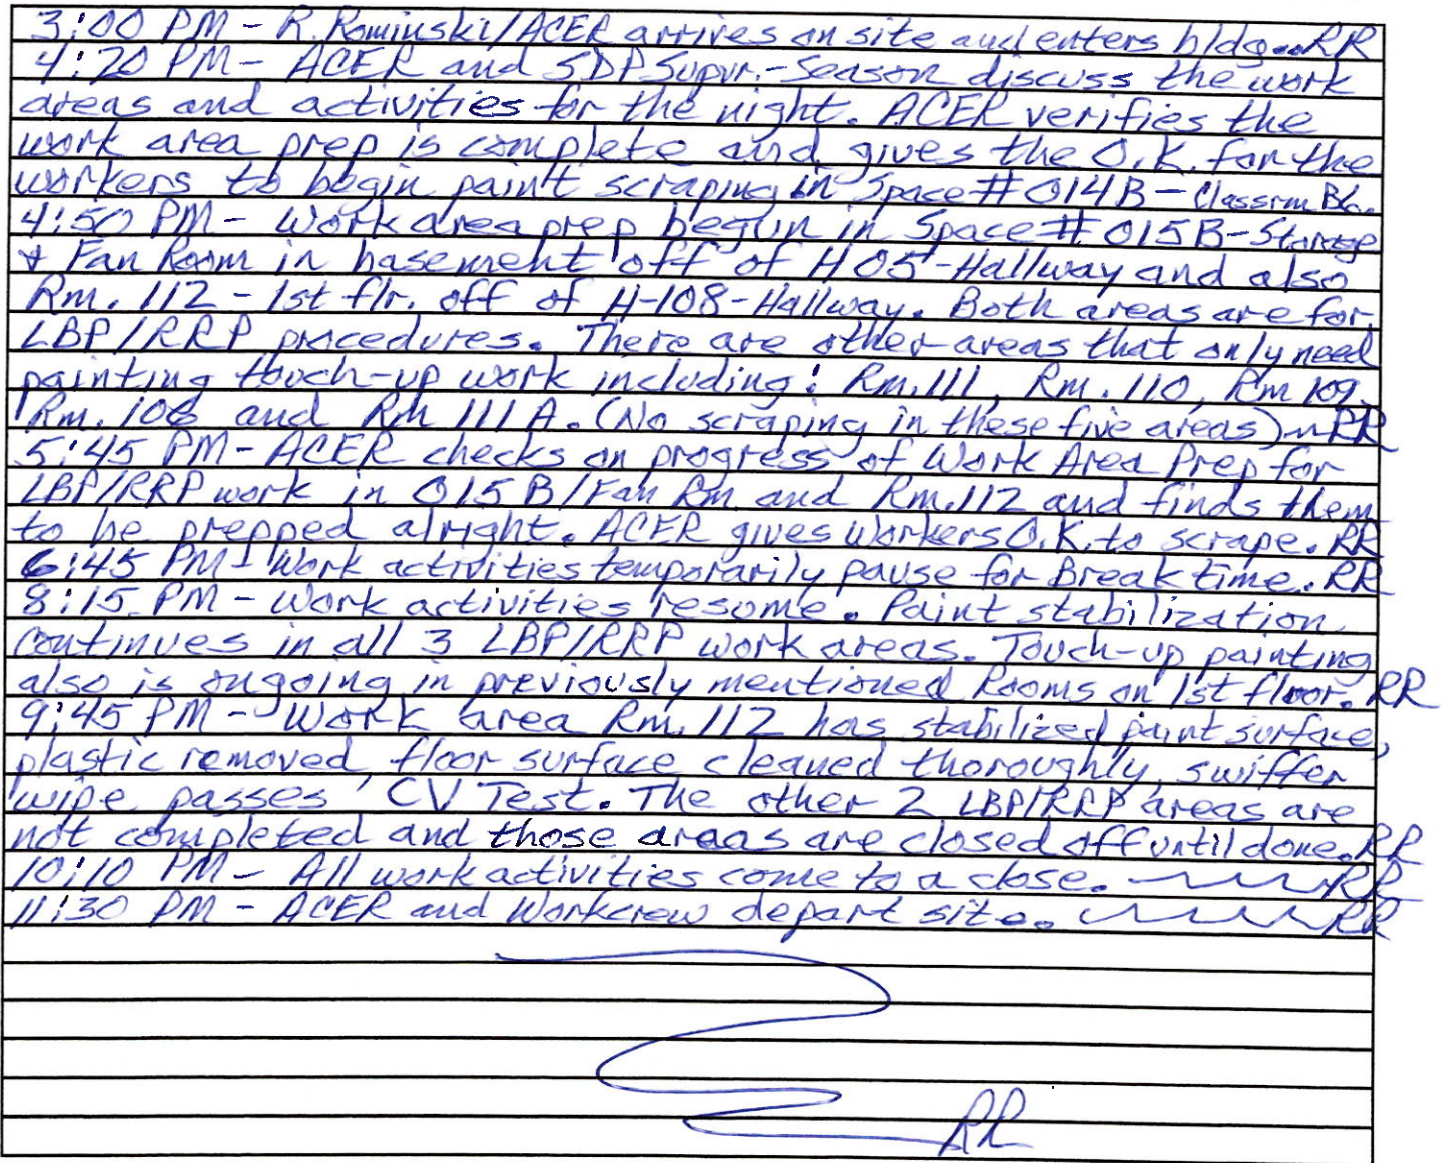 3:00 PM - R. Rominski/ACER arrives on site and enters bldg. RR
4:20 PM - ACER and SDP Supvr. - Season discuss the work
areas and activities for the night. ACER verifies the
work area prep is complete and gives the O.K. for the
workers to begin paint scraping in Space # 014B - Classrm Bldg.
4:50 PM - Work area prep begun in Space # 015B - Storage
& Fan Room in basement off of H05 - Hallway and also
Rm. 112 - 1st flr. off of H-108 - Hallway. Both areas are for
LBP/RRP procedures. There are other areas that only need
painting touch-up work including: Rm. 111, Rm. 110, Rm 109,
Rm. 106 and Rm 111A. (No scraping in these five areas) ~ RR
5:45 PM - ACER checks on progress of Work Area Prep for
LBP/RRP work in 015B/Fan Rm. and Rm. 112 and finds them
to be prepped alright. ACER gives workers O.K. to scrape. RR
6:45 PM - Work activities temporarily pause for Break time. RR
8:15 PM - Work activities resume. Paint stabilization
continues in all 3 LBP/RRP work areas. Touch-up painting
also is ongoing in previously mentioned Rooms on 1st floor. RR
9:45 PM - Work area Rm. 112 has stabilized paint surface,
plastic removed, floor surface cleaned thoroughly, swiffer
wipe passes CV Test. The other 2 LBP/RRP areas are
not completed and those areas are closed off until done. RR
10:10 PM - All work activities come to a close. RR
11:30 PM - ACER and Workcrew depart site. RR
RR